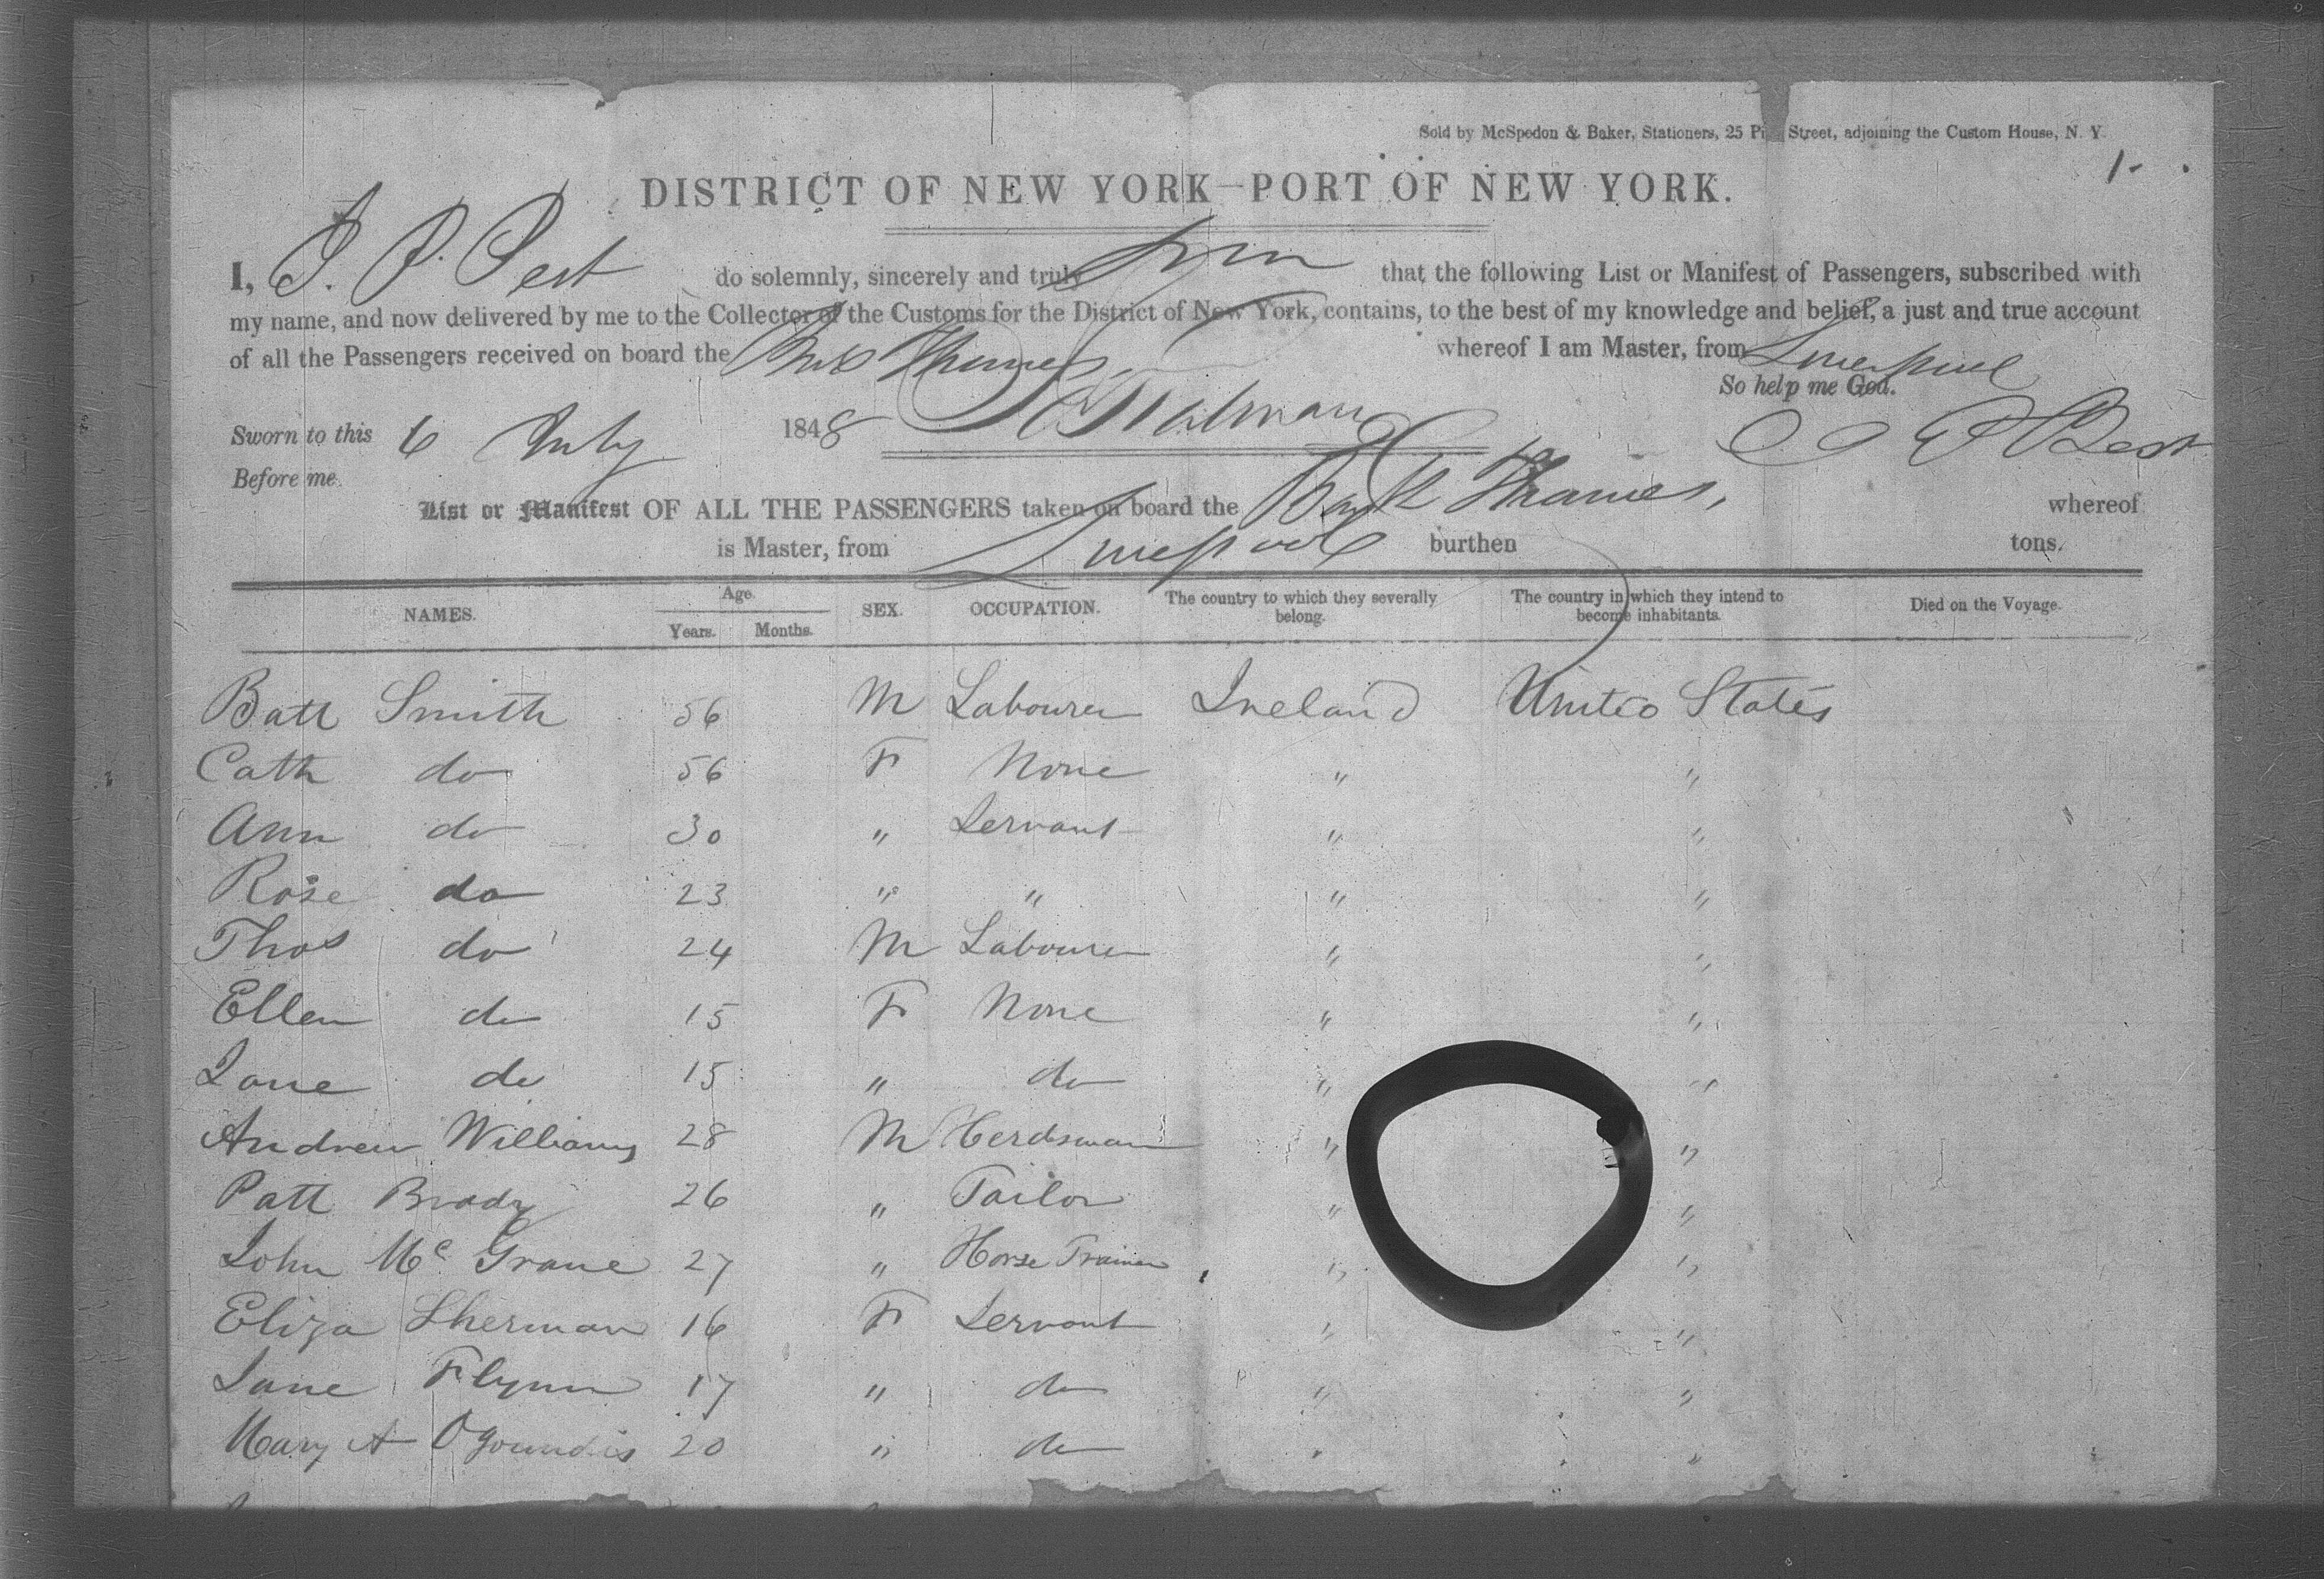 Sold by McSpedon & Baker, Stationers, 25 Street, adjoining the Custom House, N. Y.
1.
DISTRICT OF NEW YORK—PORT OF NEW YORK.
I, do solemnly, sincerely and truly that the following List or Manifest of Passengers, subscribed with
my name, and now delivered by me to the Collector of the Customs for the District of New York, contains, to the best of my knowledge and belief, a just and true account
of all the Passengers received on board the Thames whereof I am Master, from Liverpool
So help me God.
Sworn to this 6 July 1848
Before me.
List or Manifest OF ALL THE PASSENGERS taken on board the Bark Thames, whereof
is Master, from Liverpool burthen tons.
NAMES. Age. SEX. OCCUPATION. The country to which they severally belong. The country in which they intend to become inhabitants. Died on the Voyage.
Years. Months.
Batt Smith 56 M Labourer Ireland United States
Cath do 56 F None " "
Ann do 30 " Servant " "
Rose do 23 " " " "
Thos do 24 M Labourer " "
Ellen do 15 F None " "
Jane do 15 " do " "
Andrew Williams 28 M Herdsman " "
Patt Brady 26 " Tailor " "
John Mc Grane 27 " Horse Trainer " "
Eliza Sherman 16 F Servant " "
Jane Flynn 17 " do " "
Mary A 20 " do " "